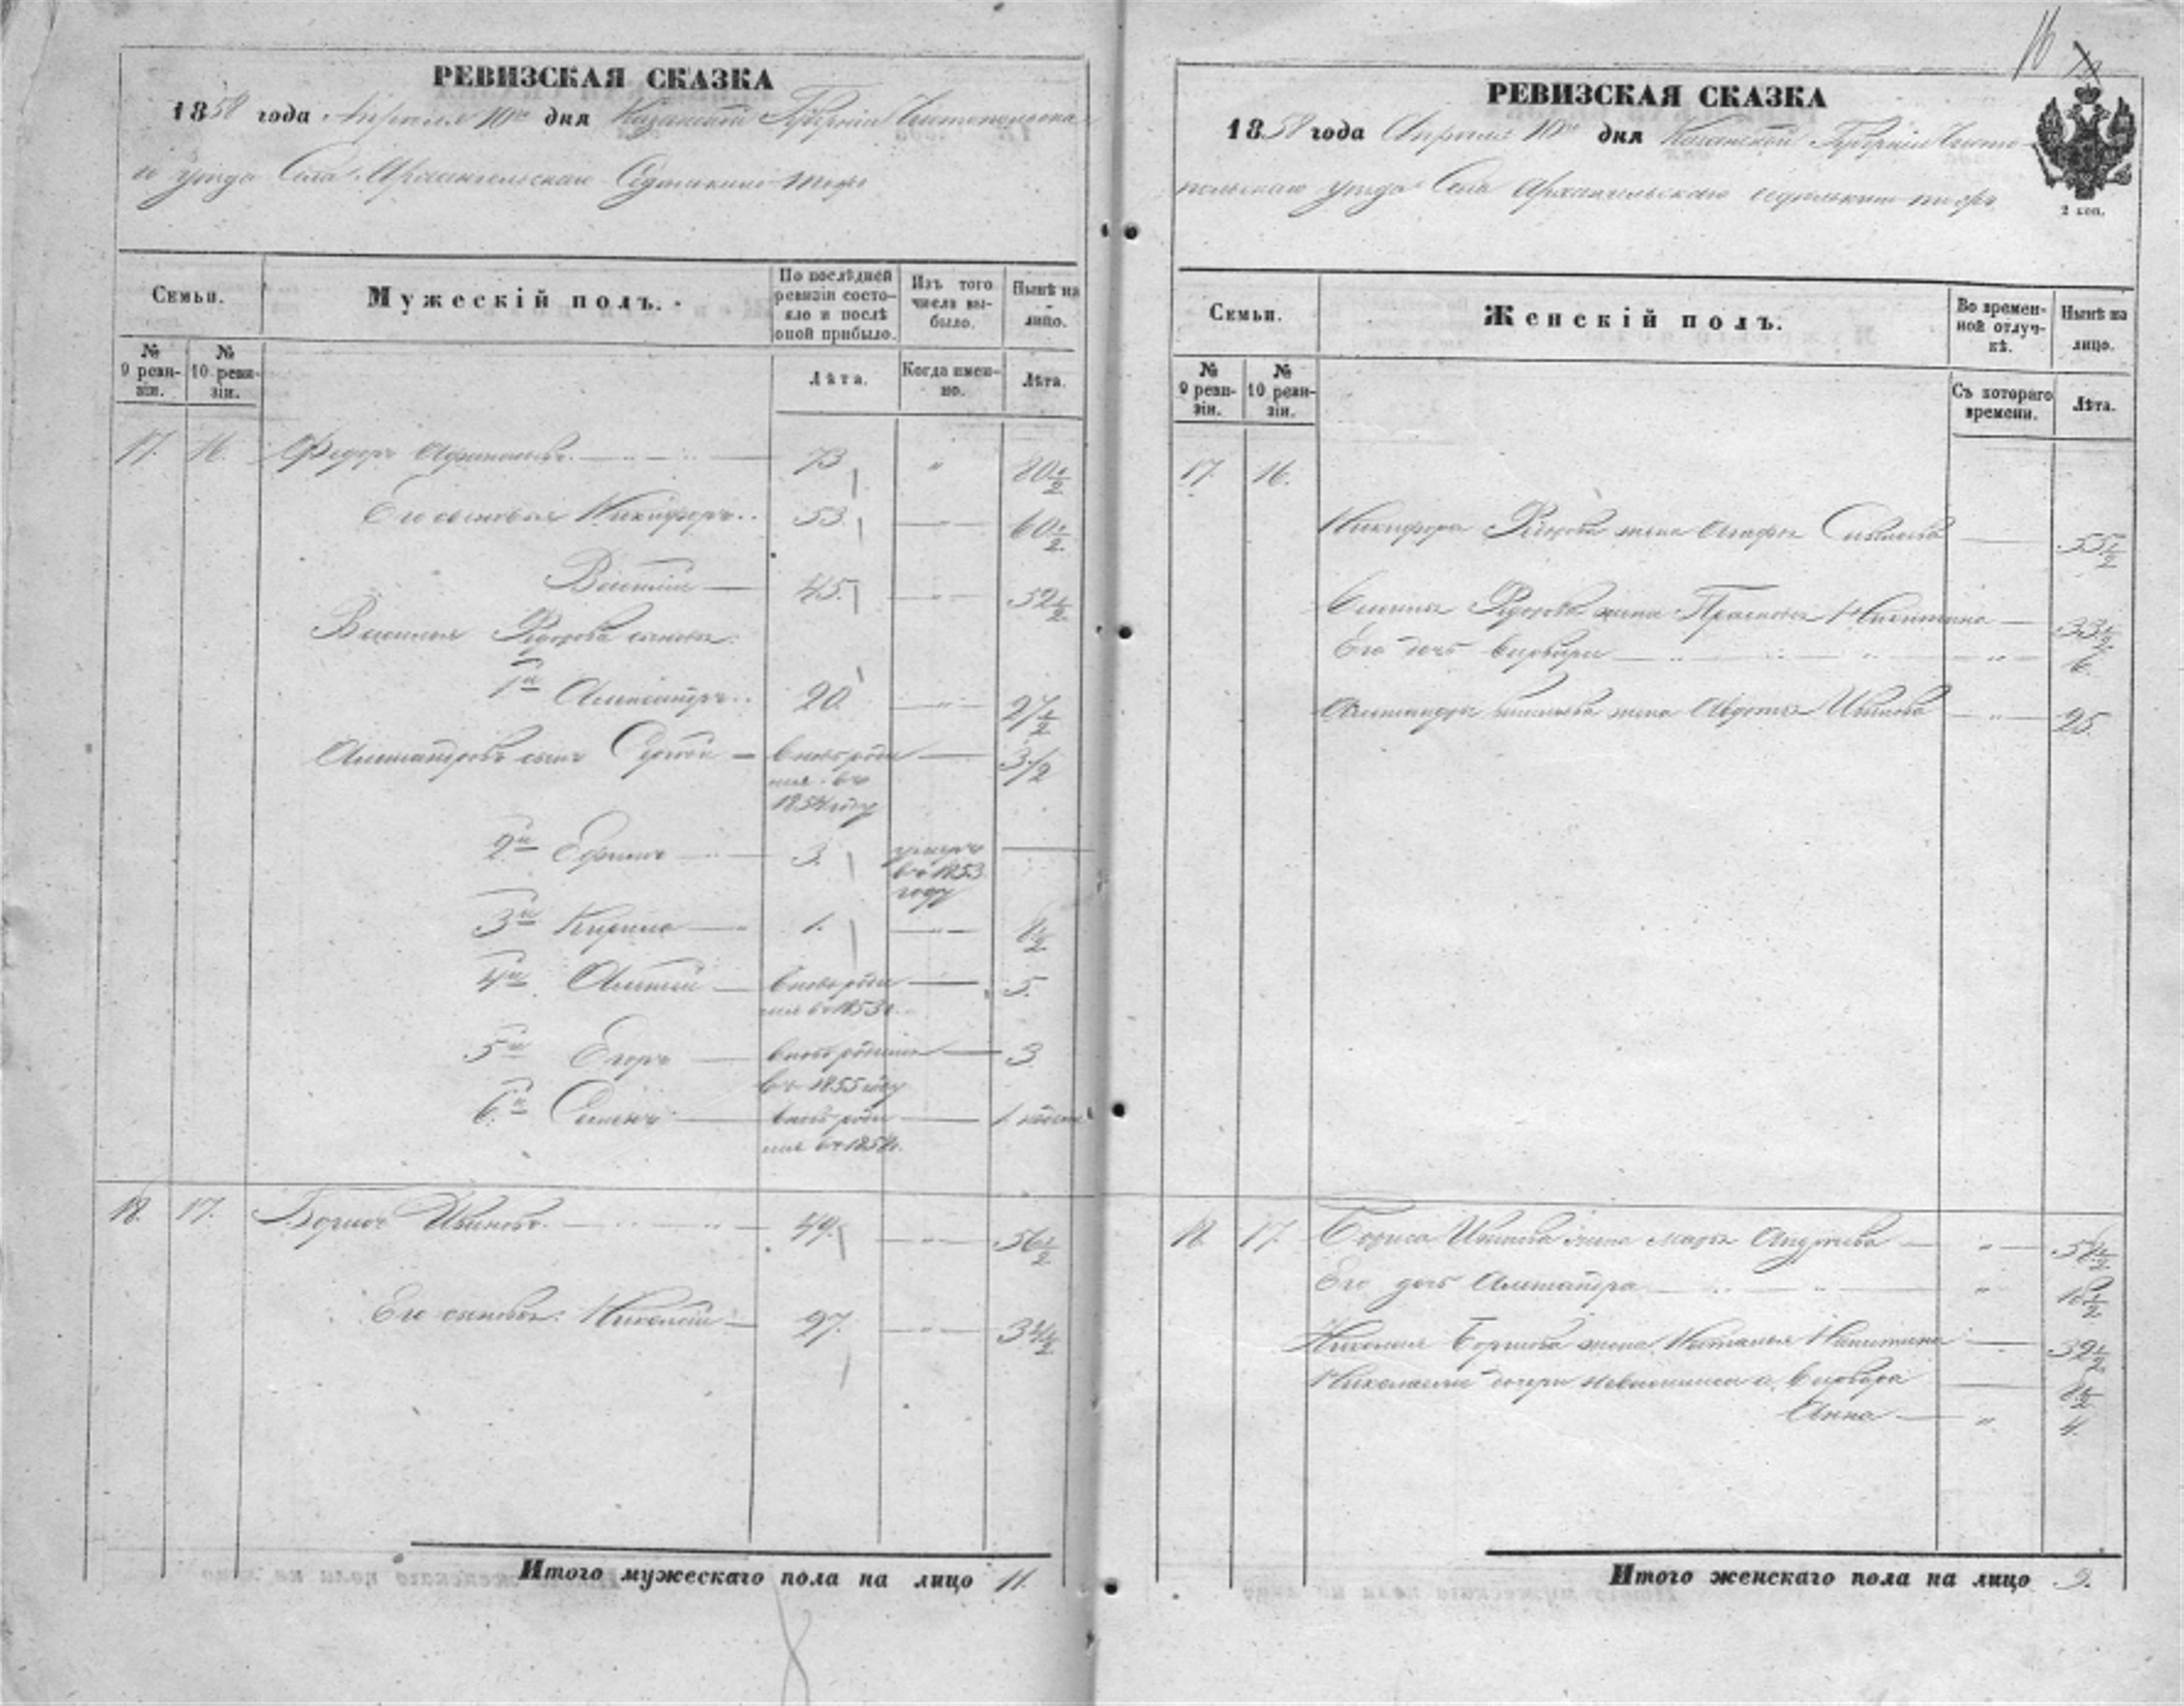 16
РЕВИЗСКАЯ СКАЗКА
1858 года Апреля 10го дня Казанской Губернiи Чистопольска
го уезда Села Архангельскаго
Семьи.
Мужескiй полъ.
По послѣдней ревизiи состо-
яло и послѣ
оной прибыло.
Изъ того
числа вы-
было.
Нынѣ на
лицо.
№
9 реви-
зiи.
№
10 реви-
зiи.
Лѣта.
Когда имен-
но.
Лѣта.
17. 16. Федоръ 73 " 80 1/2
Его сыновья Никифоръ 53. — " — 60 1/2
Василiй — 45. — " — 52 1/2
Василья Федорова сыновья:
1й Александръ 20. — " — 27 1/2
Александровъ сынъ Сергей — вновь роди — 3 1/2
лся въ
1854 году
2й Ефимъ — 3. умеръ —
въ 1853
году
3й Кирила — 1. — " — 8 1/2
4й Алексей — вновь роди — 5.
лся въ 1853 г.
5й Егоръ — вновь родился — 3
въ 1855 году
6й Семенъ — вновь роди — 1
лся въ 1858 г.
18. 17. Борисъ Ивановъ. 49. — " — 56 1/2
Его сыновья: Николай — 27. — " — 34 1/2
Итого мужескаго пола на лицо 11.
РЕВИЗСКАЯ СКАЗКА
1858 года Апреля 10го дня Казанской Губернiи Чисто-
польскаго уезда Села Архангельскаго
2 коп.
Семьи.
Женскiй полъ.
Во времен-
ной отлуч-
кѣ.
Нынѣ на
лицо.
№
9 реви-
зiи.
№
10 реви-
зiи.
Съ котораго
времени.
Лѣта.
17. 16.
Никифора Федорова жена Агафья — 55 1/2
Василья Федорова жена Прасковья Никитина — 33 1/2
Его дочь Варвара — " — 6.
Александра Васильева жена Авдотья Иванова — " — 25.
18. 17. Бориса Иванова жена Марья Андреева — " — 58 1/2
Его дочь Александра " 18 1/2
Николая Борисова жена Наталья Никитина — 32 1/2
Николаевы дочери Варвара — 8 1/2
Анна — " 4.
Итого женскаго пола на лицо 9.